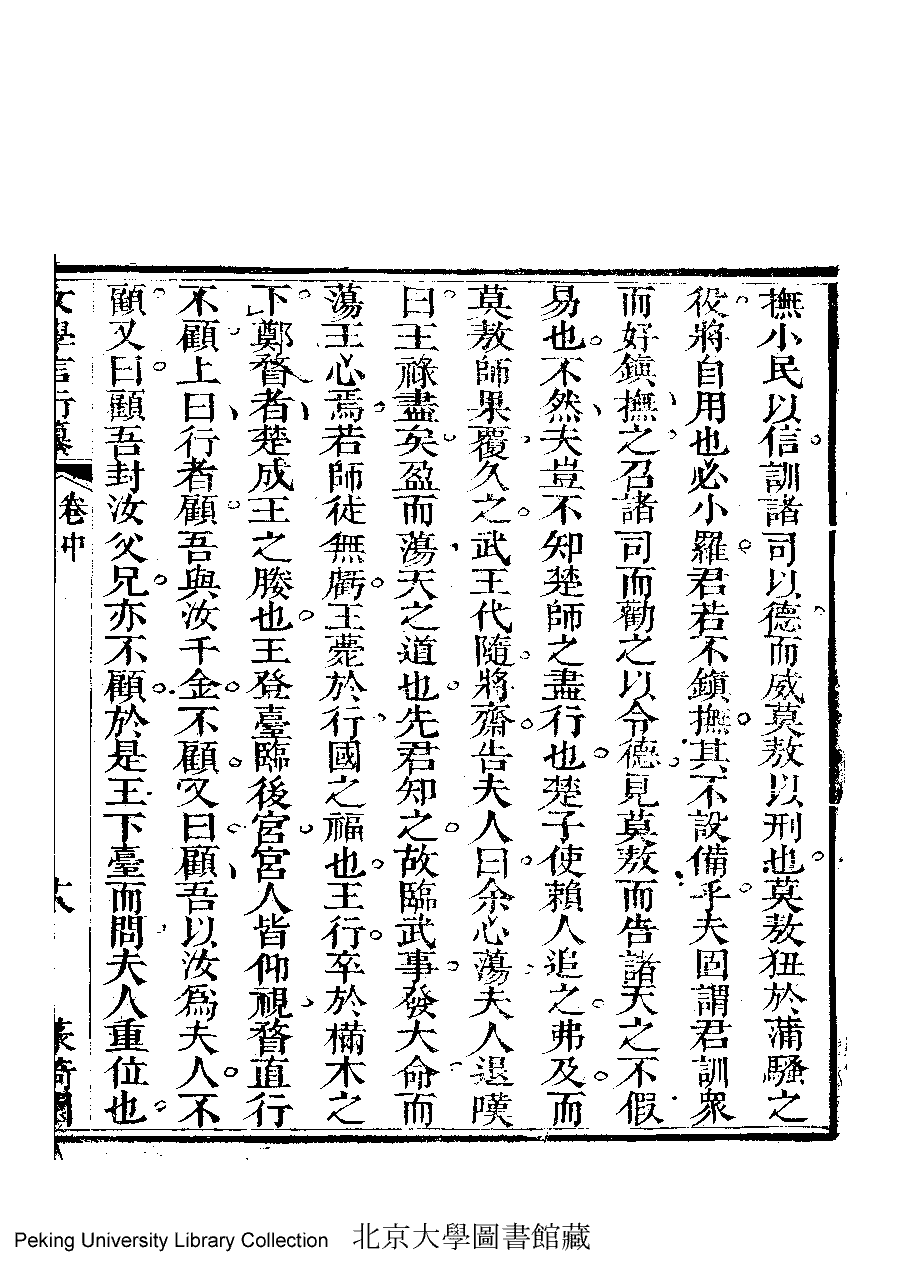 撫小民以信訓諸司以德而威莫敖以刑也莫敖狃於蒲騷之
役將自用也必小羅君若不鎮撫其不設備乎夫固謂君訓衆
而好鎮撫之召諸司而勸之以令德見莫敖而告諸天之不假
易也不然夫豈不知楚師之盡行也楚子使賴人追之弗及而
莫敖師果覆久之武王代隨將齋告夫人曰余心蕩夫人退嘆
曰王祿盡矣盈而蕩天之道也先君知之故臨武事發大命而
蕩王心焉若師徒無虧王薨於行國之福也王行卒於樠木之
下鄭瞀者楚成王之媵也王登臺臨後宮宮人皆仰視瞀直行
不顧上曰行者顧吾與汝千金不顧又曰顧吾以汝爲夫人不
顧又曰顧吾封汝父兄亦不顧於是王下臺而問夫人重位也
女學言行纂 卷中
Peking University Library Collection 北京大學圖書館藏